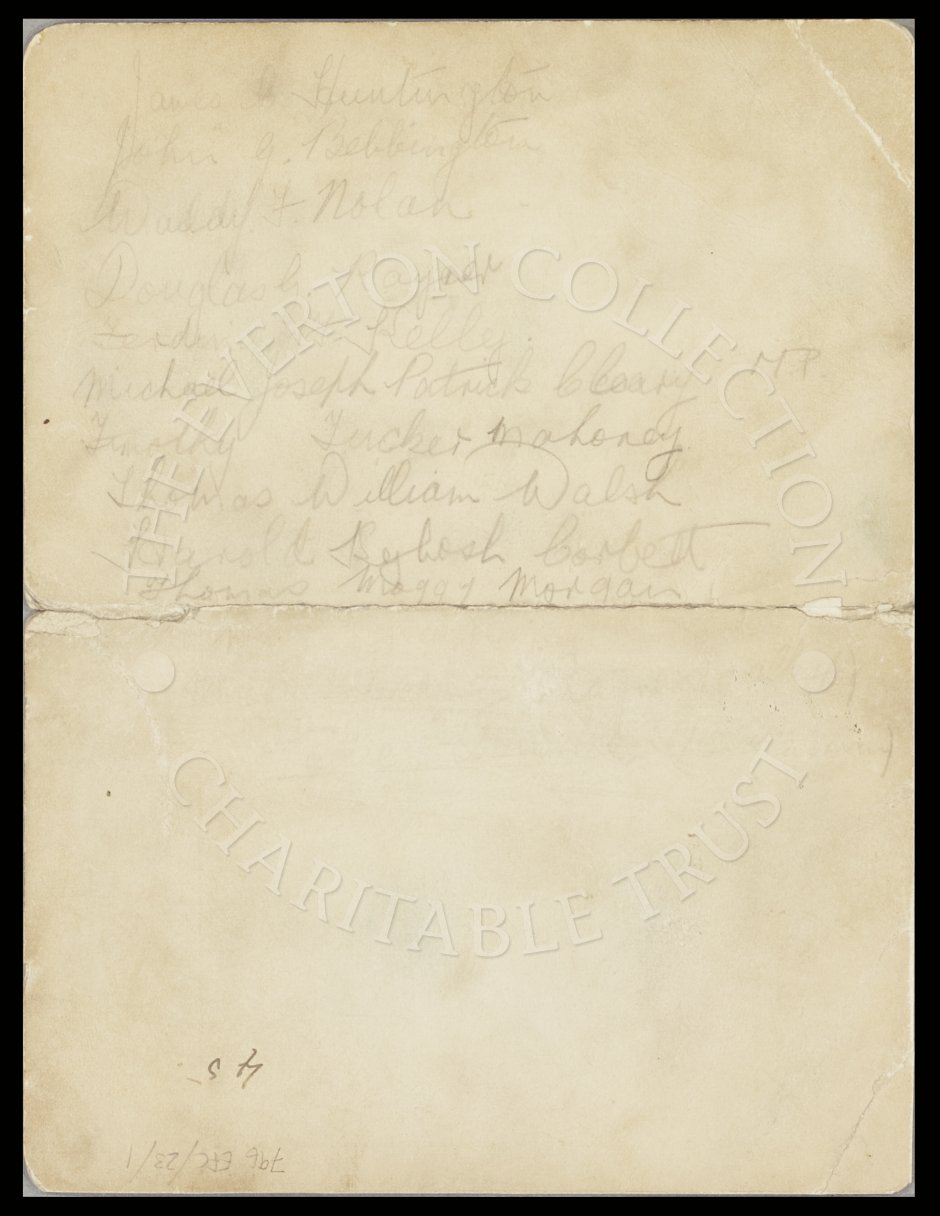 James Huntington
John G. Bebbington
Waddy F. Nolan
Douglas G. Rayner
Kelly.
Michael Joseph Patrick Cleary M.P.
Timothy Tucker Mahoney.
Thomas William Walsh
Harold Corbett
Thomas Moggy Morgan
THE EVERTON COLLECTION
CHARITABLE TRUST
45
796 EFC/23/1